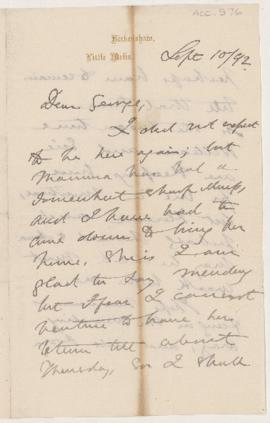 ACC. 976
Little
Sept 10/92
Dear George,
I did not expect
to be here again; but
Mamma has had a
somewhat sharp attack,
and I have had to
come down to bring her
home. She is I am
glad to say mending
but I fear I cannot
venture to leave her
before till about
Thursday, So I shall